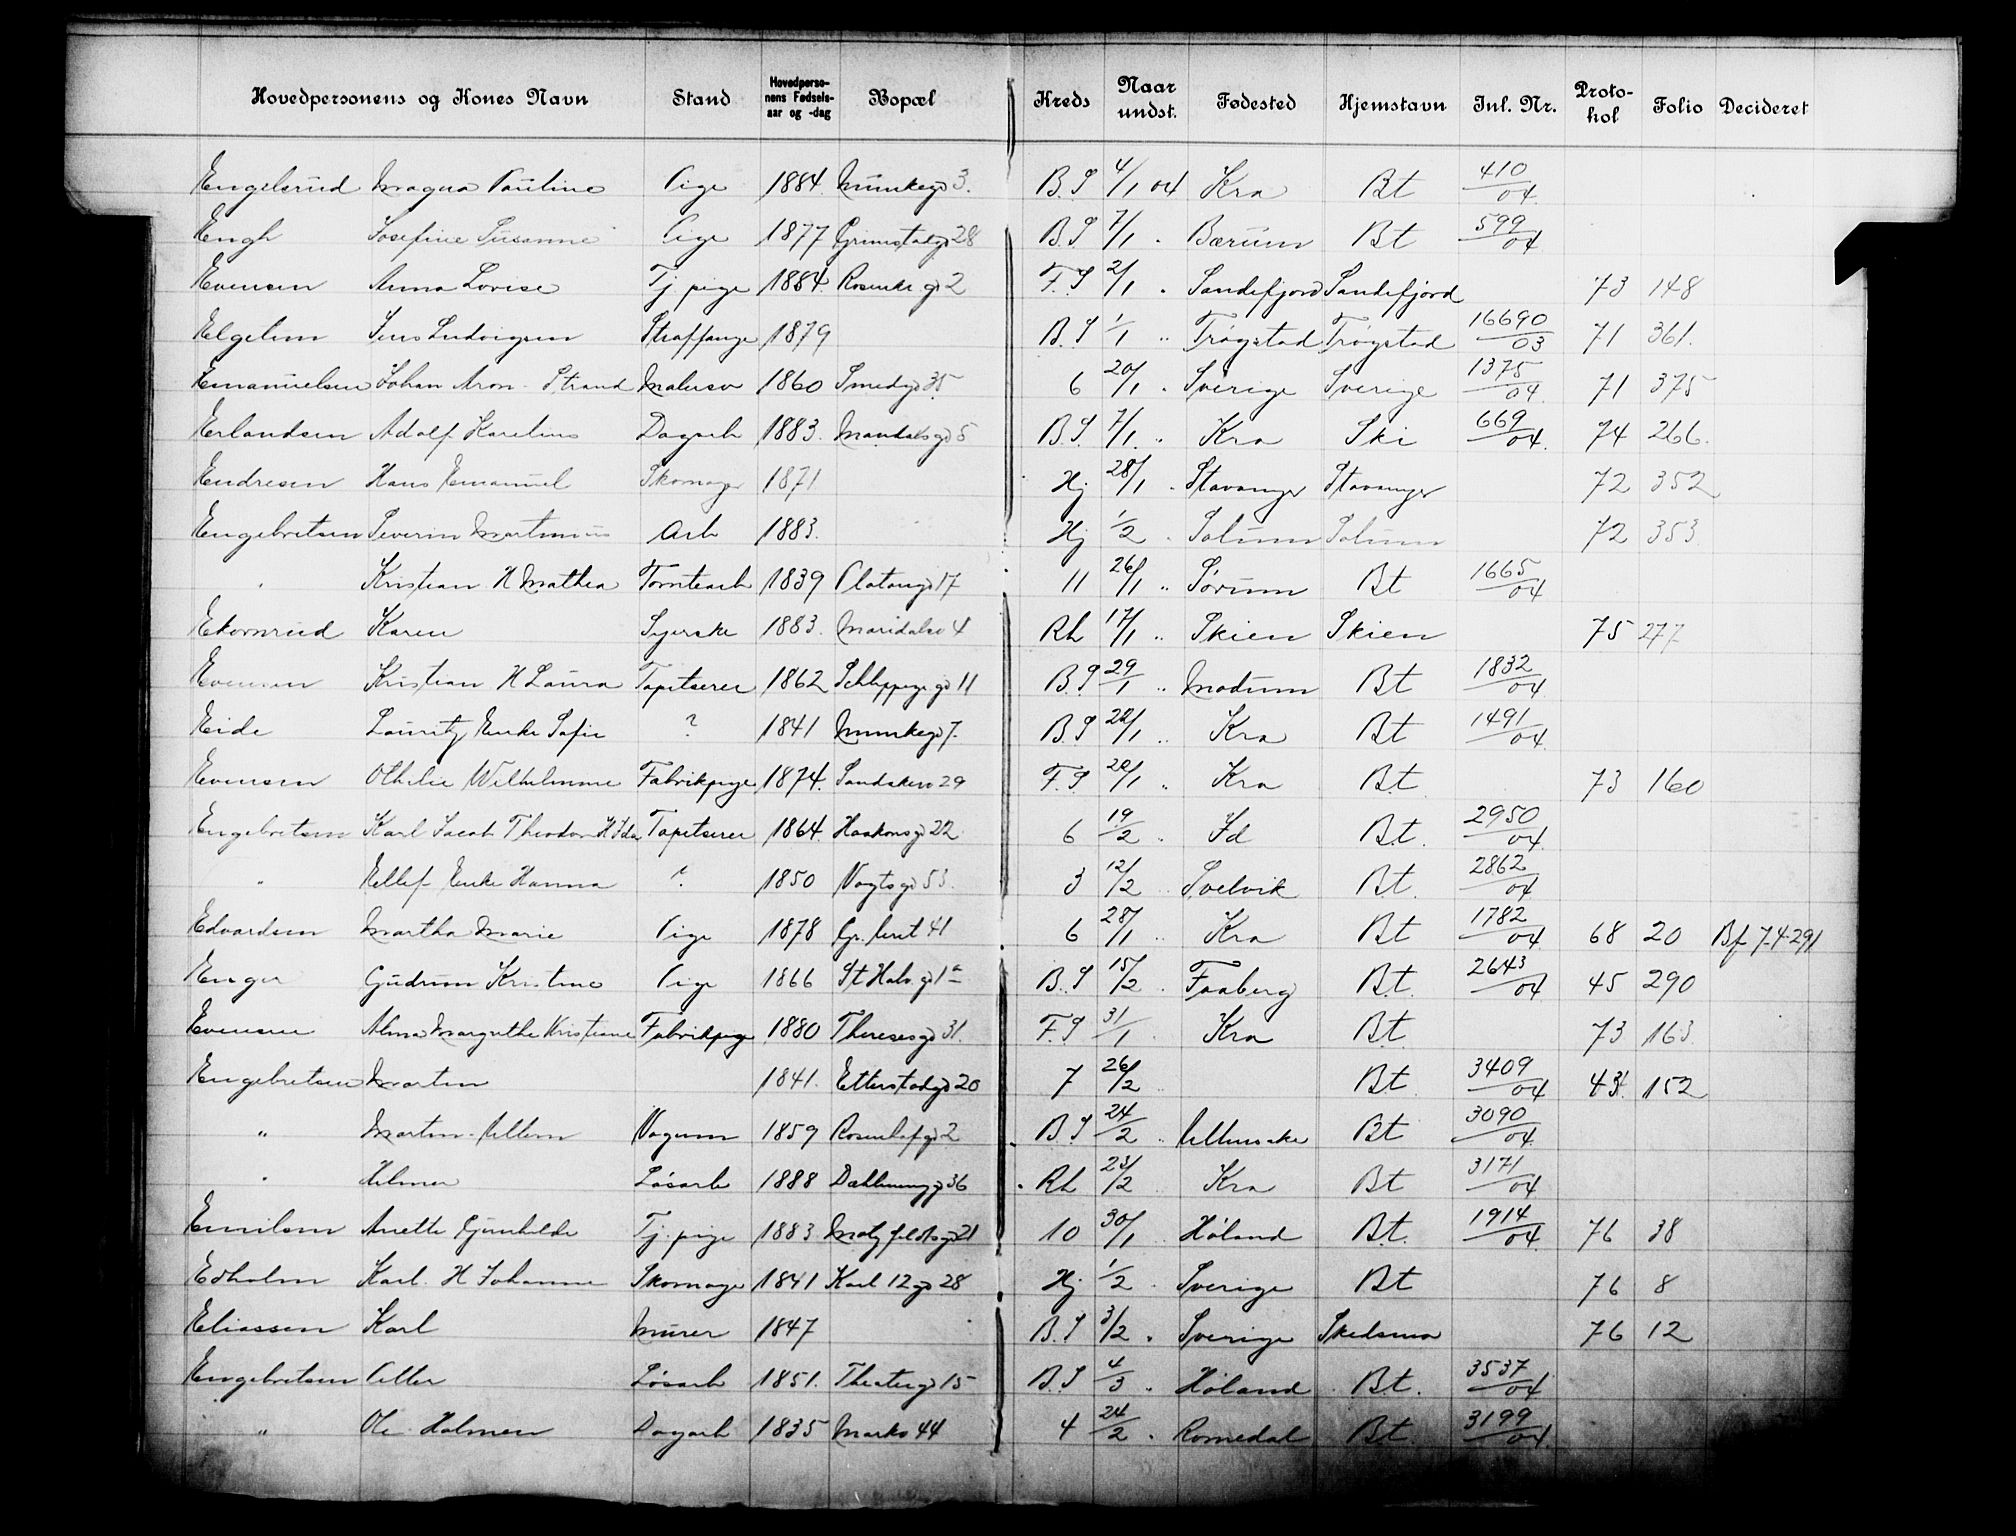 Hovedpersonens og Kones Navn Stand Hovedpersonens Fødselsaar og -dag Bopæl Kreds Naar undst. Fødested Hjemstavn Inl. Nr. Protokol Folio Decideret
Engelsrud Magna Pauline Pige 1884. Munkegd 3. B.S 4/1 04 Kra Bt 410/04
Engh Josefine Susanne Pige 1877 Grimstadgd 28 B.S 7/1 " Bærum Bt 599/04
Evensen Anna Lovise Tj. pige 1884. Rosenkr gd 2 F.S 2/1 " Sandefjord Sandefjord 73 148
Elgelim Jens Ludvigsen Straffange 1879 B.S 1/1 " Trøgstad Trøgstad 16690/03 71 361.
Emanuelsen Johan Aron - Strand Malersv 1860 Smedgd 35 6 20/1 " Sverige Sverige 1375/04 71 375
Erlandsen Adolf Karelius Dagarb 1883. Mandalsgd 5 B.S. 7/1 " Kra Ski 669/04. 74 266.
Endresen Hans Emanuel Skomager 1871 Hj 28/1 " Stavanger Stavanger 72 352
Engebretsen Severin Martinius Arb 1883. Hj 1/2 " Solum Solum 72 353
" Kristian H Mathea Tomtearb 1839 Platougd 17 11 26/1 " Sørum Bt 1665/04
Ekornrud Karen Syerske 1883. Maridalsv 4 Rh 17/1 " Skien Skien 75 277
Evensen Kristian H Laura Tapetserer 1862 Schleppegr gd 11 B.S 29/1 " Modum Bt 1832/04
Eide Lauritz Enke Sofie ? 1841 Munkegd 7. B.S 22/1 " Kra Bt 1491/04
Evensen Othilie Wilhelmine Fabrikpige 1874. Sandakerv 29 F.S 20/1 " Kra Bt. 73 160
Engebretsen Karl Jacob Theodor H Ida Tapetserer 1864. Haakonsgd 22 6 19/2 Id Bt. 2950/04
" Ellef Enke Hanna ?. 1850 Vogtsgd 53. 3 12/2 " Svelvik Bt. 2862/04
Edvardsen Martha Marie Pige 1878 Gr. leret 41 6 28/1 " Kra Bt 1782/04 68 20 Bf 74-291
Enger Gudrun Kristine Pige 1866 St Halv. gd 1a B.S 15/2 " Faaberg Bt. 2643/04 45 290
Evensen Alma Margrethe Kristiane Fabrikpige 1880 Theresesgd 31. F.S 31/1 Kra Bt. 73 163
Engebretsen Martin 1841. Etterstadgd 20 7 26/2 " Bt. 3409/04 43. 152
" Martin - Ullern Vognm 1859 Rosenhofgd 2 B.S 24/2 " Ullensaker Bt 3090/04
" Hilmar Løsarb 1888 Dæhlenenggd 36 Rh 23/2 " Kra Bt 3171/04
Emilsen Anette Gunhilde Tj. pige 1883 Motzfeldtsgd 21 10 30/1 " Høland Bt. 1914/04. 76 38
Edholm Karl. H Johanne Skomager 1841 Karl 12 gd 28 Hj 1/2 " Sverige Bt 76 8
Eliassen Karl Murer 1847 B.S 3/2 " Sverige Skedsmo 76 12
Engebretsen Petter Løsarb 1851. Theatergd 15 B.S 4/3 " Høland Bt. 3537/04
" Ole Holmen Dagarb 1835 Markv 44 4 24/2 " Romedal Bt. 3199/04.